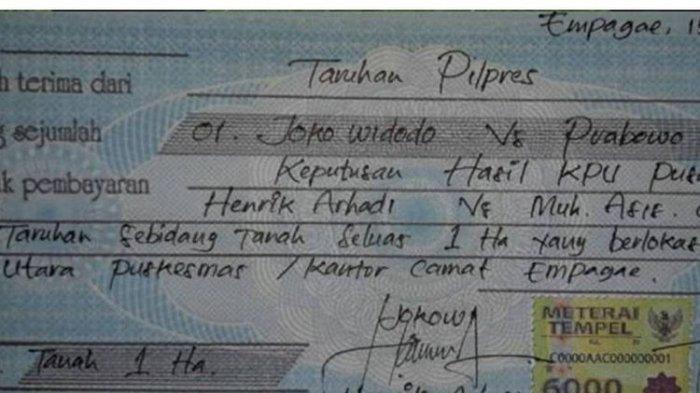 Empagae, 15
h terima dari Taruhan Pilpres
g sejumlah 01. Joko widodo Vs Prabowo
k pembayaran Keputusan Hasil KPU Pus
Henrik Arhadi Vs Muh. Asis.
Taruhan Sebidang Tanah Seluas 1 Ha yang berlokas
Utara Puskesmas / Kantor Camat Empagae.
Jokowi
METERAI
TEMPEL
C0000AAC000000001
6000
Tanah 1 Ha.